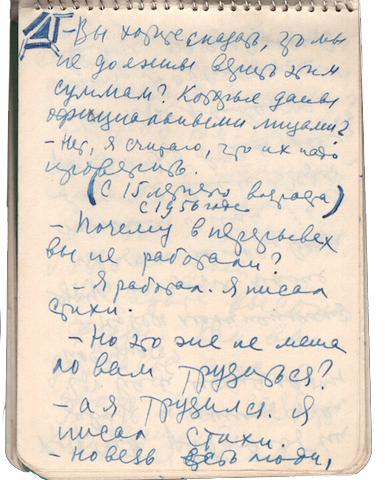 – Вы хотите сказать, что мы
не должны верить этим
суммам? Которые даны
официальными лицами?
– Нет, я считаю, что их надо
проверить.
(С 15 летнего возраста)
с 1956 года
– Почему в перерывах
вы не работали?
– Я работал. Я писал
стихи.
– Но это же не меша
ло вам трудиться?
– а я трудился. Я
писал стихи.
– но ведь есть люди,